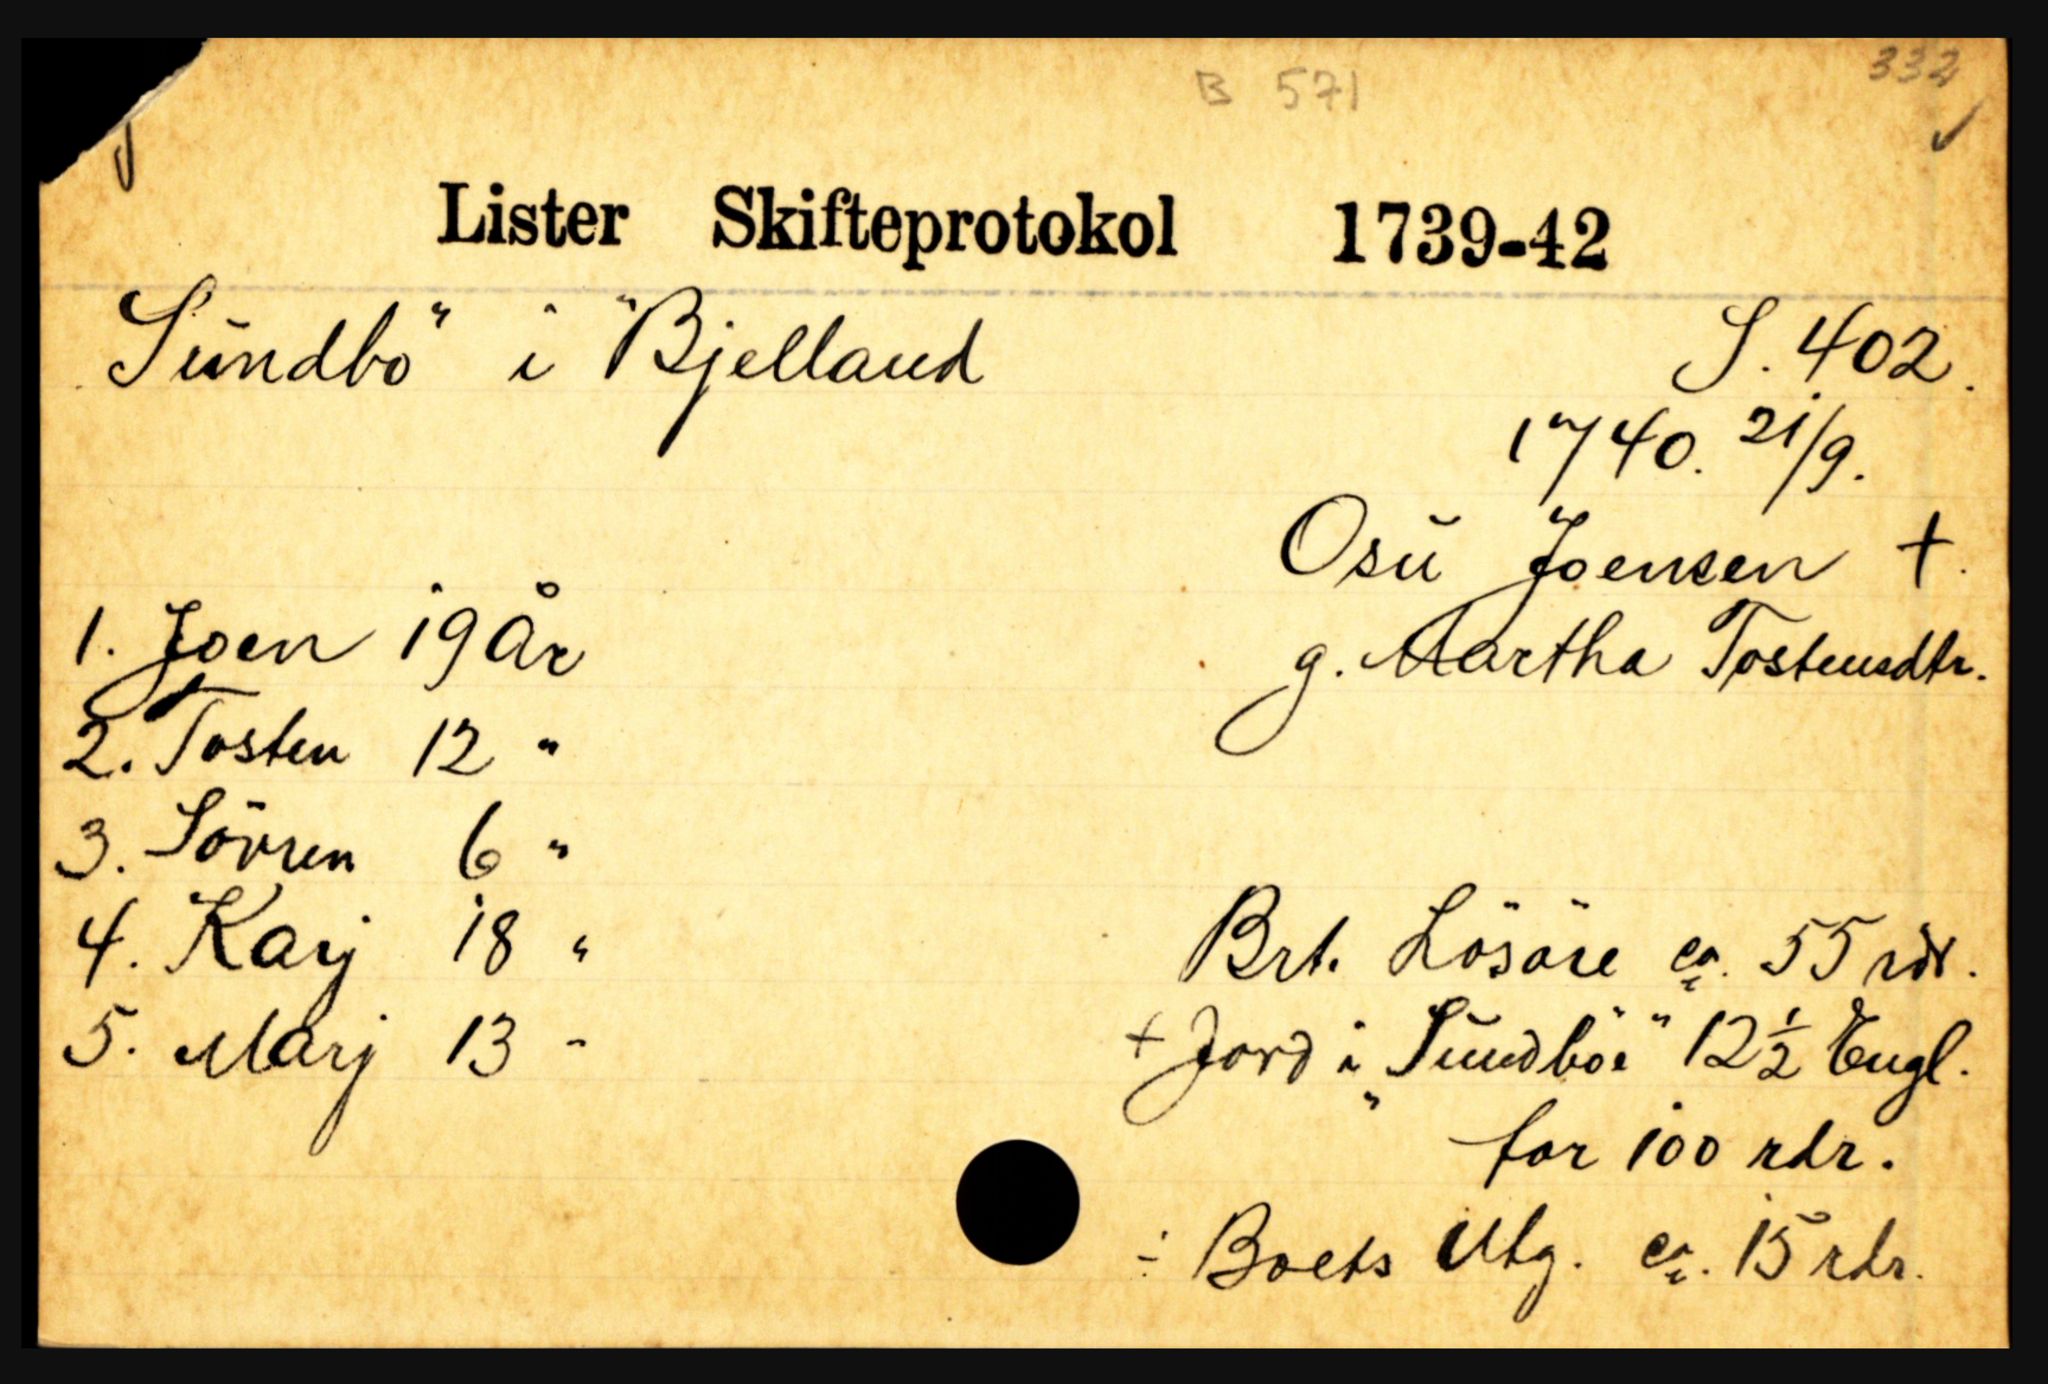 B 571
332
Lister Skifteprotokol 1739-42
Sundbö" i "Bjelland
S. 402.
1740. 21/9.
Osu Joensen +.
g. Martha Tostensdtr.
1. Joen 19 År
2. Tosten 12 "
3. Sövren 6 "
4. Karj 18 "
5. Marj 13 "
Brt. Lösöre ca. 55 rdr.
+ Jord i "Sundböe" 12 ½ Engl.
for 100 rdr.
÷ Boets Utg. ca. 15 rdr.